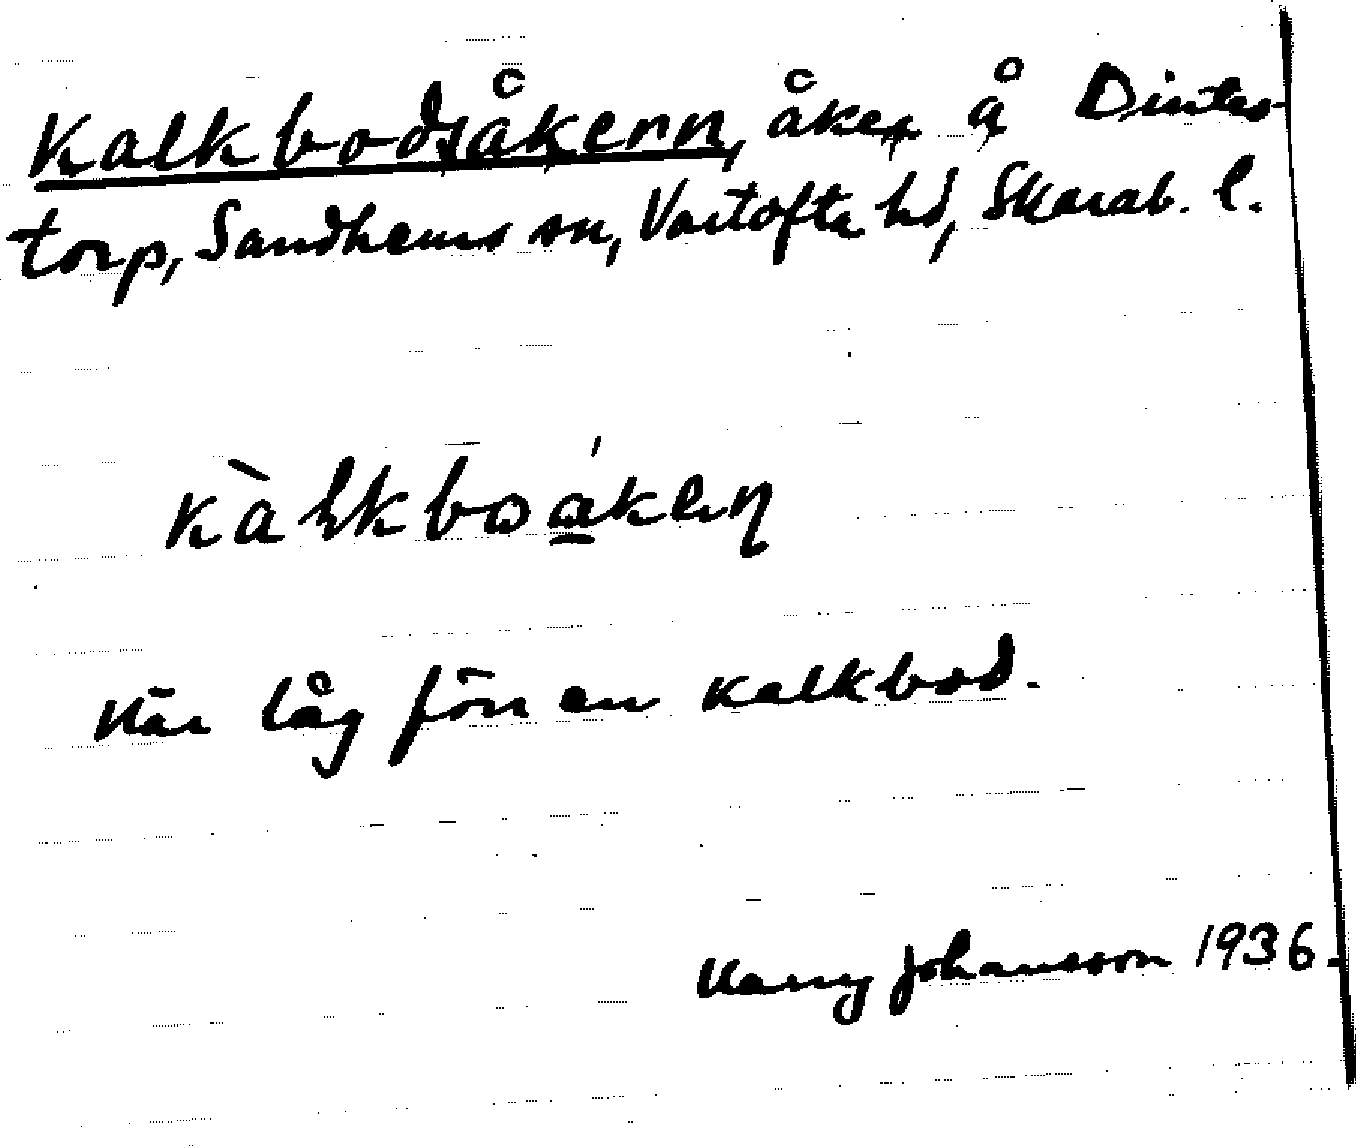 Kalkbodsåkern, åker å Dintes-
torp, Sandhems sn, Vartofta hd, Skarab. l.
Här låg förr en kalkbod.
Harry Johansson 1936.